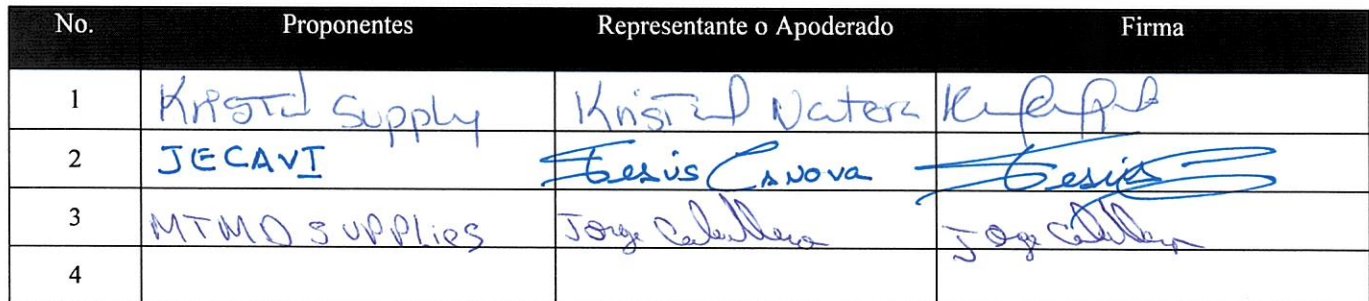 No. Proponentes Representante o Apoderado Firma
1 Kristal Supply Kristal Natera
2 JECAVI Jesus Canova Jesus
3 MTMD SUPPlies Jorge Caballero Jorge Caballero
4